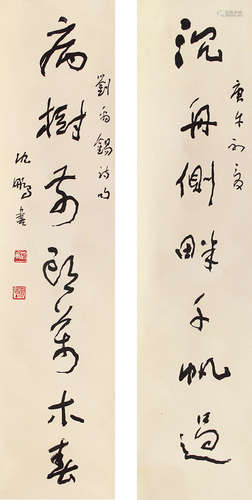 庚午初夏
沉舟側畔千帆過
劉禹錫詩句
病樹前頭萬木春
沈鵬書